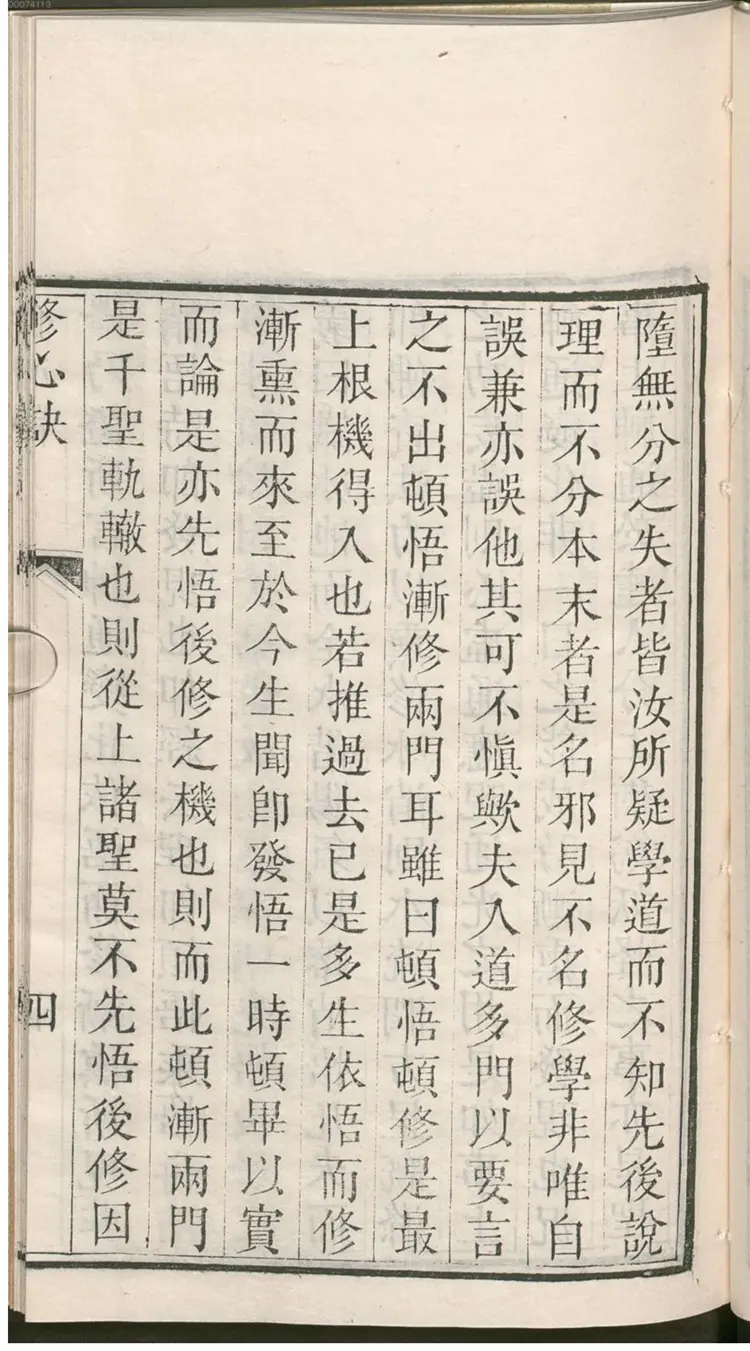 00074113
墮無分之失者皆汝所疑學道而不知先後說
理而不分本末者是名邪見不名修學非唯自
誤兼亦誤他其可不愼歟夫入道多門以要言
之不出頓悟漸修兩門耳雖曰頓悟頓修是最
上根機得入也若推過去已是多生依悟而修
漸熏而來至於今生聞卽發悟一時頓畢以實
而論是亦先悟後修之機也則而此頓漸兩門
是千聖軌轍也則從上諸聖莫不先悟後修因
修心訣
四